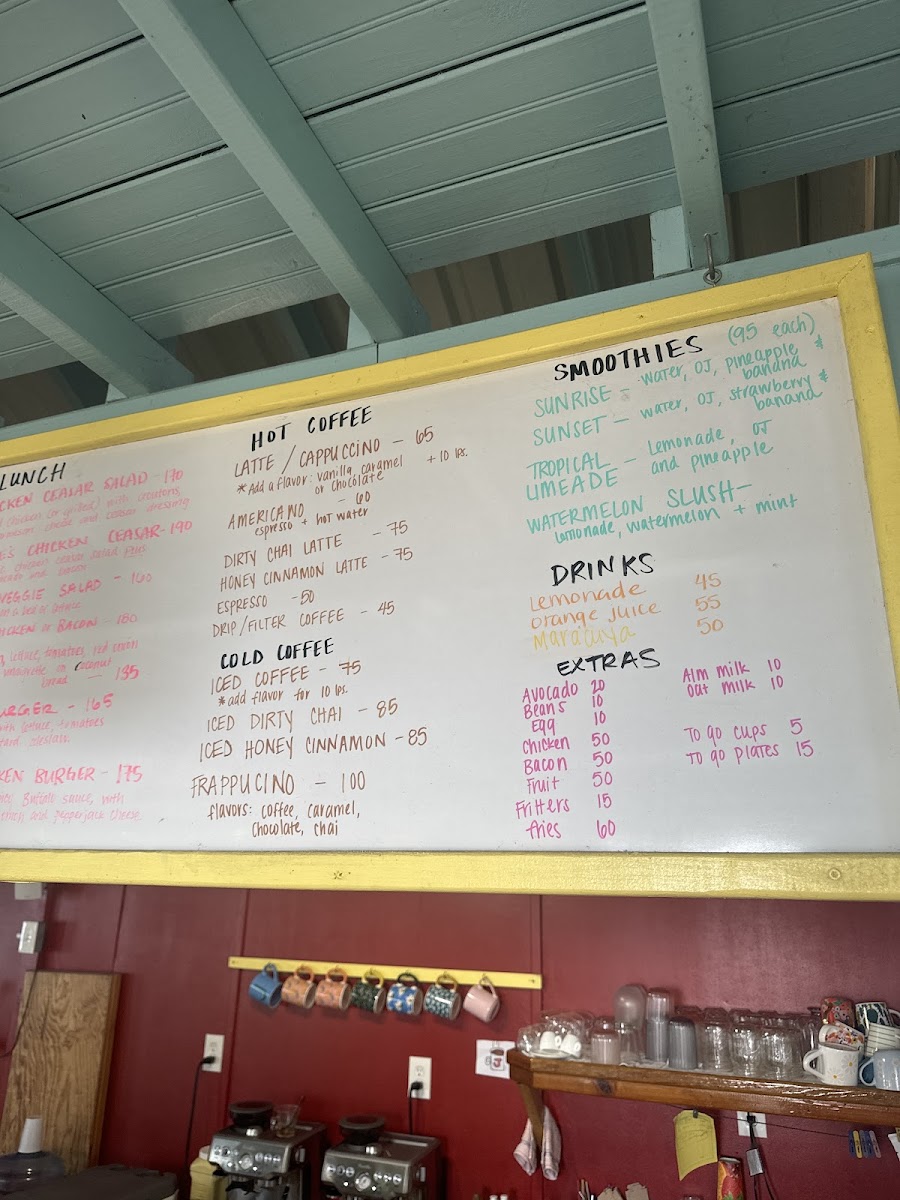 LUNCH
CKEN CEASAR SALAD - 190
chicken (or grilled) with croutons,
cheese and ceasar dressing
E'S CHICKEN CEASAR - 190
chicken ceasar salad plus
and
VEGGIE SALAD - 160
on a bed of lettuce
HICKEN or BACON - 180
lettuce, tomatoes, red onion
on coconut
bread — 135
URGER - 165
with lettuce, tomatoes
KEN BURGER - 175
Buffalo sauce, with
and pepperjack cheese
HOT COFFEE
LATTE / CAPPUCCINO - 65
*Add a flavor: vanilla, caramel + 10 lps.
or chocolate
AMERICANO - 60
espresso + hot water
DIRTY CHAI LATTE - 75
HONEY CINNAMON LATTE - 75
ESPRESSO - 50
DRIP/FILTER COFFEE - 45
COLD COFFEE
ICED COFFEE - 75
*add flavor for 10 lps.
ICED DIRTY CHAI - 85
ICED HONEY CINNAMON - 85
FRAPPUCINO - 100
flavors: coffee, caramel,
chocolate, chai
SMOOTHIES (95 each)
SUNRISE - water, OJ, pineapple &
banana
SUNSET - water, OJ, strawberry &
banana
TROPICAL - Lemonade, OJ
LIMEADE and pineapple
WATERMELON SLUSH -
lemonade, watermelon + mint
DRINKS
Lemonade 45
orange juice 55
Maracuya 50
EXTRAS
Avocado 20
Beans 10
Egg 10
Chicken 50
Bacon 50
Fruit 50
Fritters 15
fries 60
Alm milk 10
Oat milk 10
To go cups 5
To go plates 15